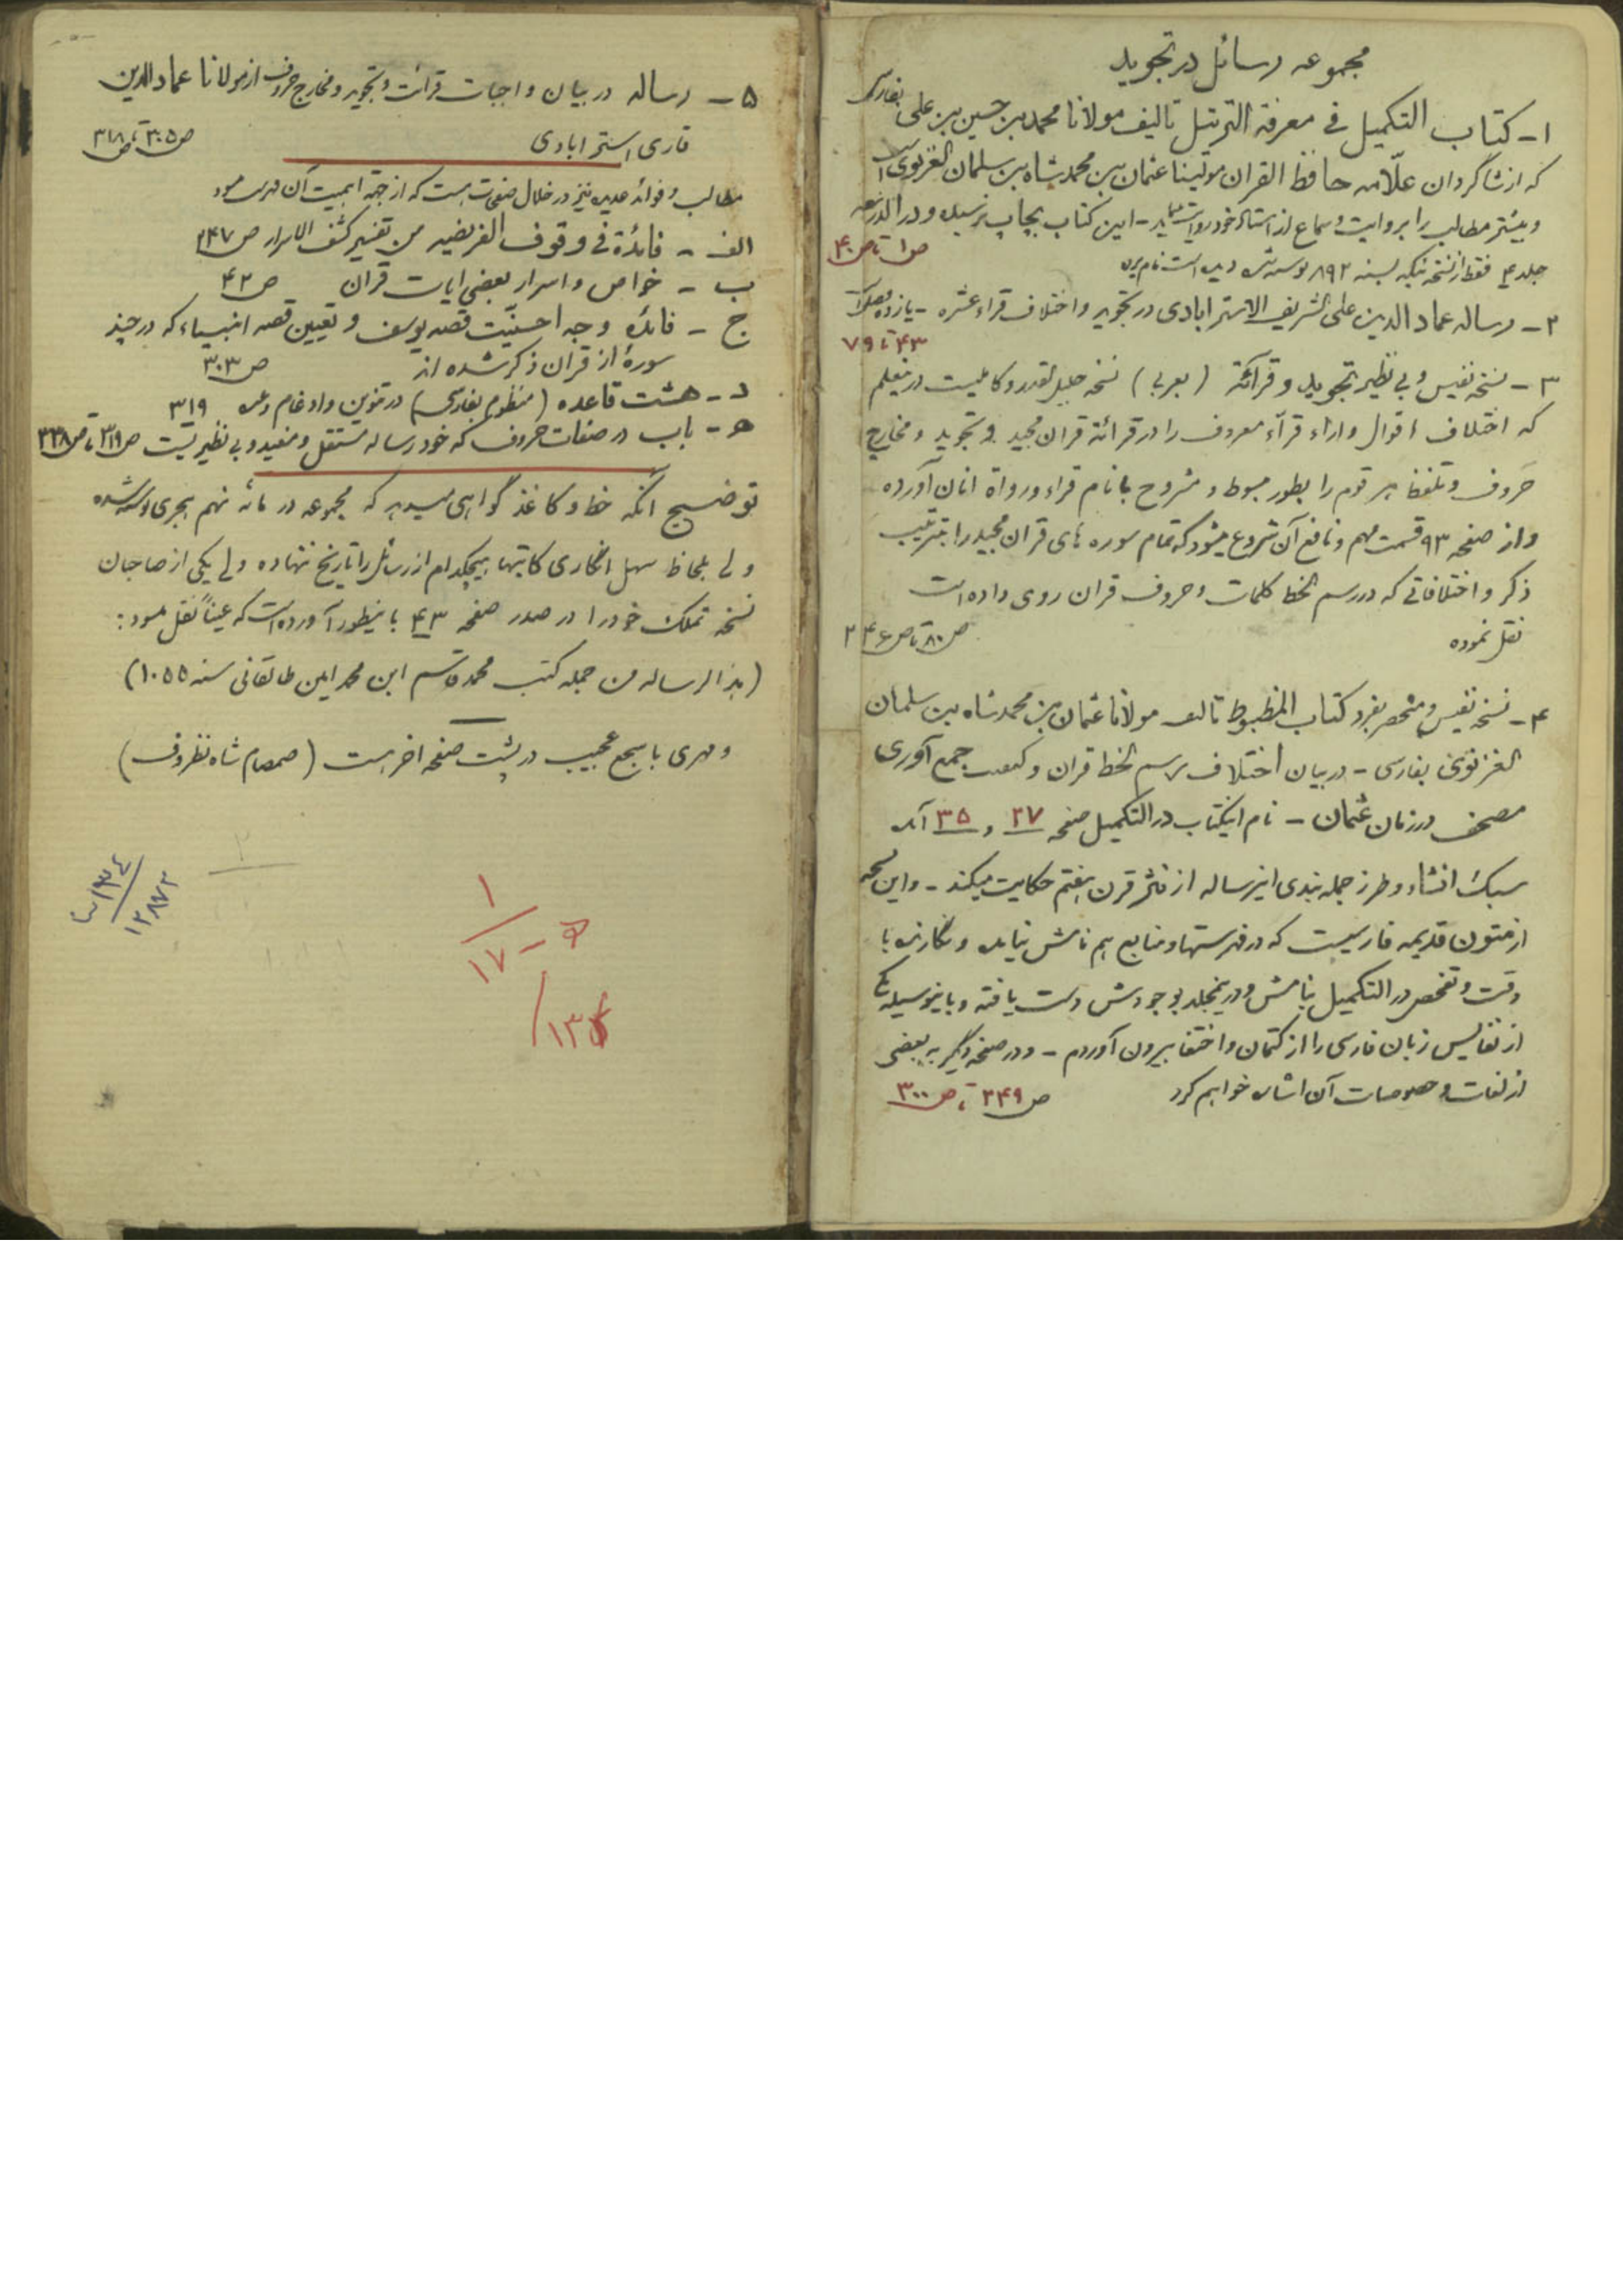 مجموعه رسائل در تجوید
۱- کتاب التکمیل فی معرفة الترتیل تالیف مولانا محمد بن حسین بن علی بفارسی
که از شاگردان علّامه حافظ القران مولینا عثمان بن محمد شاه بن سلمان الغزنوی است
و بیشتر مطالب را بروایت و سماع از استاد خود روایت - این کتاب بچاپ نرسیده و در الذریعه
جلد ۴ فقط از نسخه نیکه بسنه ۸۹۲ نوشته شده دیده است نام برده
ص۱ تا ص۴۰
۲- رساله عماد الدین علی الشریف الاسترابادی در تجوید و اختلاف قراء عشره - یازده
۴۳ تا ۷۹
۳- نسخه نفیس و بی نظیر تجوید و قرائة (بعربی) نسخه جلیل القدر و کاملیست در اینعلم
که اختلاف اقوال و اراء قرآء معروف را در قرائة قران مجید و تجوید و مخارج
حروف و تلفظ هر قوم را بطور مبسوط و مشروح با نام قراء و رواة انان آورده
و از صفحه ۹۳ قسمت مهم و نافع آن شروع میشود که تمام سوره های قران مجید را بترتیب
ذکر و اختلافاتی که در رسم الخط کلمات و حروف قران روی داده است
نقل نموده
ص۸۰ تا ص۲۴۶
۴- نسخه نفیس و منحصر بفرد کتاب المضبوط تالیف مولانا عثمان بن محمد شاه بن سلمان
الغزنوی بفارسی - در بیان اختلاف برسم الخط قران و کیفیت جمع آوری
مصحف در زمان عثمان - نام اینکتاب در التکمیل صفحه ۲۷ و ۳۵ آمده
سبک انشاء و طرز جمله بندی اینرساله از نثر قرن هفتم حکایت میکند - و این نسخه
از متون قدیمه فارسیست که در فهرستها و منابع هم نامش نیامده و نگارنده با
دقت و تفحص در التکمیل بنامش و در ینمجلد بوجودش دست یافته و باینوسیله یکی
از نفایس زبان فارسی را از کتمان و اختفا بیرون آوردم - و در صفحه دیگر به بعضی
از لغات و خصوصیات آن اشاره خواهم کرد
ص۲۴۹ تا ص۳۰۰
۵- رساله در بیان واجبات قرائت و تجوید و مخارج حروف از مولانا عماد الدین
قاری استرابادی
ص۳۰۵ تا ص۳۱۸
مطالب و فوائد عدیده نیز در خلال صفحات هست که از جهة اهمیت آن فهرست میشود
الف - فائدة فی وقوف الفریضیه من تفسیر کشف الاسرار ص۲۴۷
ب - خواص و اسرار بعضی ایات قران ص۴۲
ج - فائده وجه احسنیّت قصه یوسف و تعیین قصه انبیاء که در چند
سورهٔ از قران ذکر شده اند ص۳۰۳
د - هشت قاعده (منظوم بفارسی) در تنوین و ادغام و غیره ۳۱۹
ه - باب در صفات حروف که خود رساله مستقل و مفید و بی نظیریست ص۳۱۹ تا ص۳۳۸
توضیح انکه خط و کاغذ گواهی میدهد که مجموعه در مائه نهم هجری نوشته شده
ولی بلحاظ سهل انگاری کاتبها هیچکدام از رسائل را تاریخ ننهاده ولی یکی از صاحبان
نسخه تملک خود را در صدر صفحه ۴۳ باینطور آورده است که عیناً نقل میشود:
(هذا الرساله من جمله کتب محمد قاسم ابن محمد امین طالقانی سنه ۱۰۵۵)
و مهری با سجع عجیب در پشت صفحه اخر هست (صمصام شاه نظروف)
۲
۱۲۸۷۲
۱
۱۷ - ۵